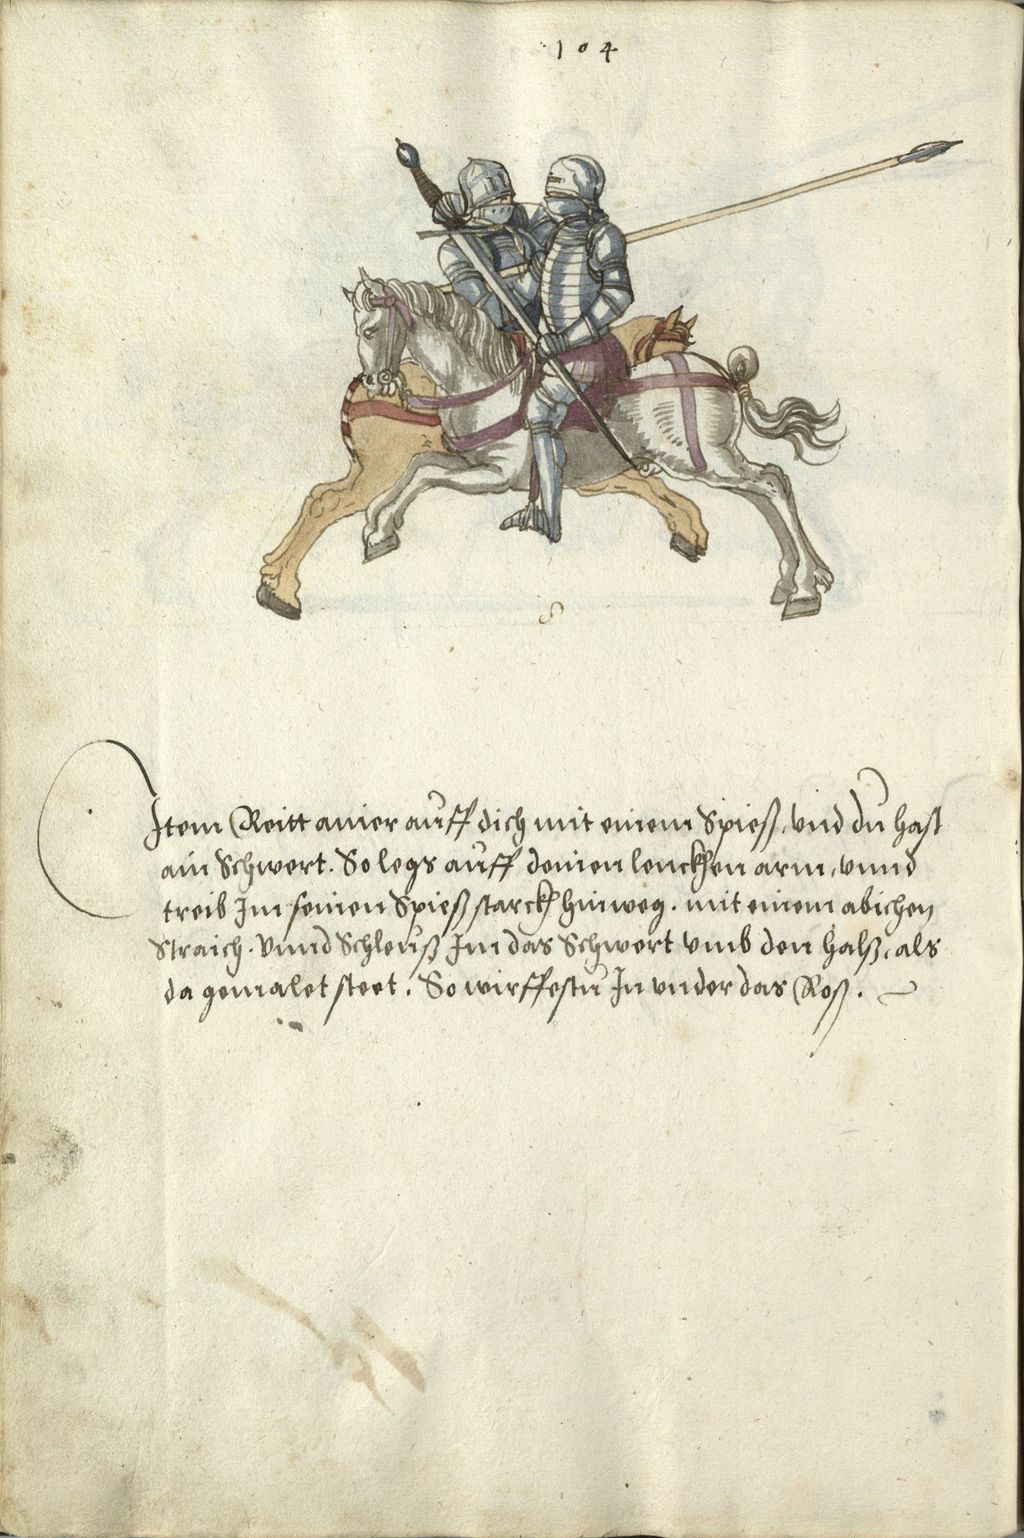 104
8
Item Reitt ainer auff dich mit einem Spieß, vnd du hast
ain Schwert. So legs auff deinen lenckhen arm, vnnd
treib Im seinen Spieß starckh hinweg. mit einem abichen
Straich. Vnnd Schleuß Im das Schwert vmb den halß, als
da gemalet steet. So wirffestu In vnder das Roß.